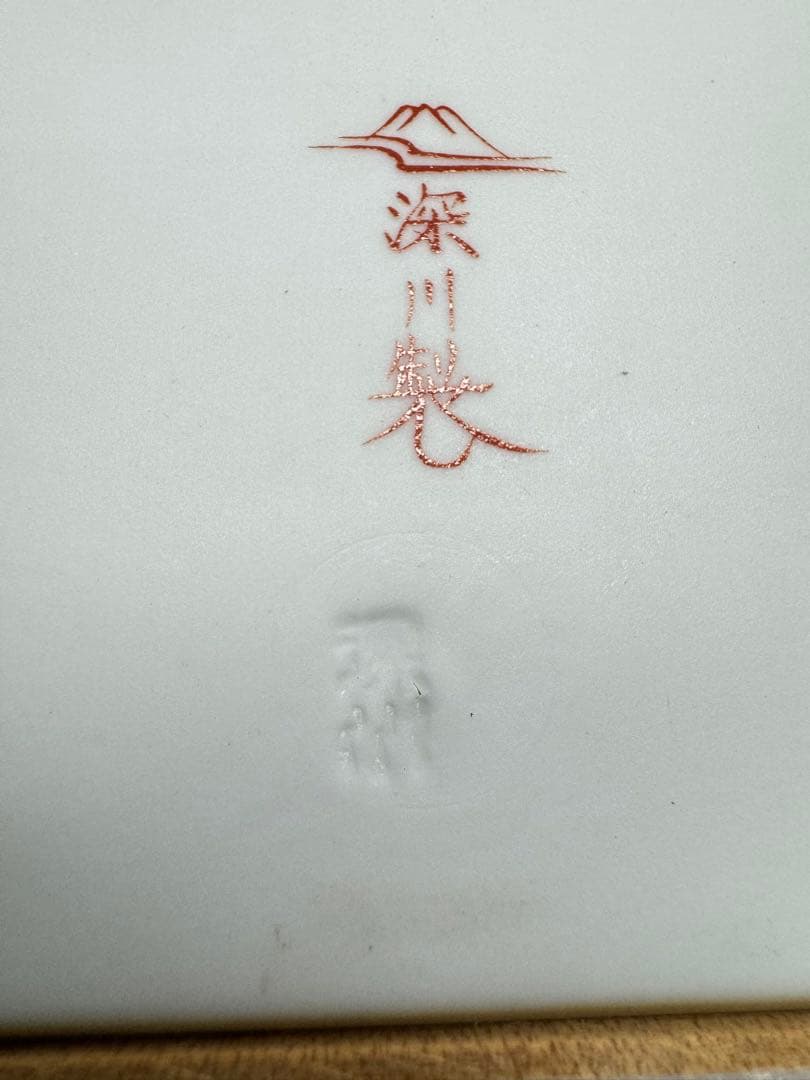 深川製